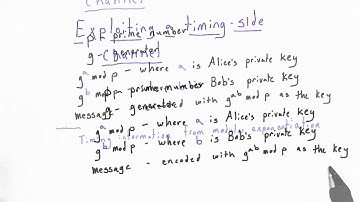 Channel
Exploiting a timing-side
p - prime number
g - generator
Channel
g^a mod p - where a is Alice's private key
g^b mod p - where b is Bob's private key
p - prime number
g - generator
message - encoded with g^ab mod p as the key
g^a mod p - where a is Alice's private key
Timing information from modular exponentiation
g^b mod p - where b is Bob's private key
message - encoded with g^ab mod p as the key